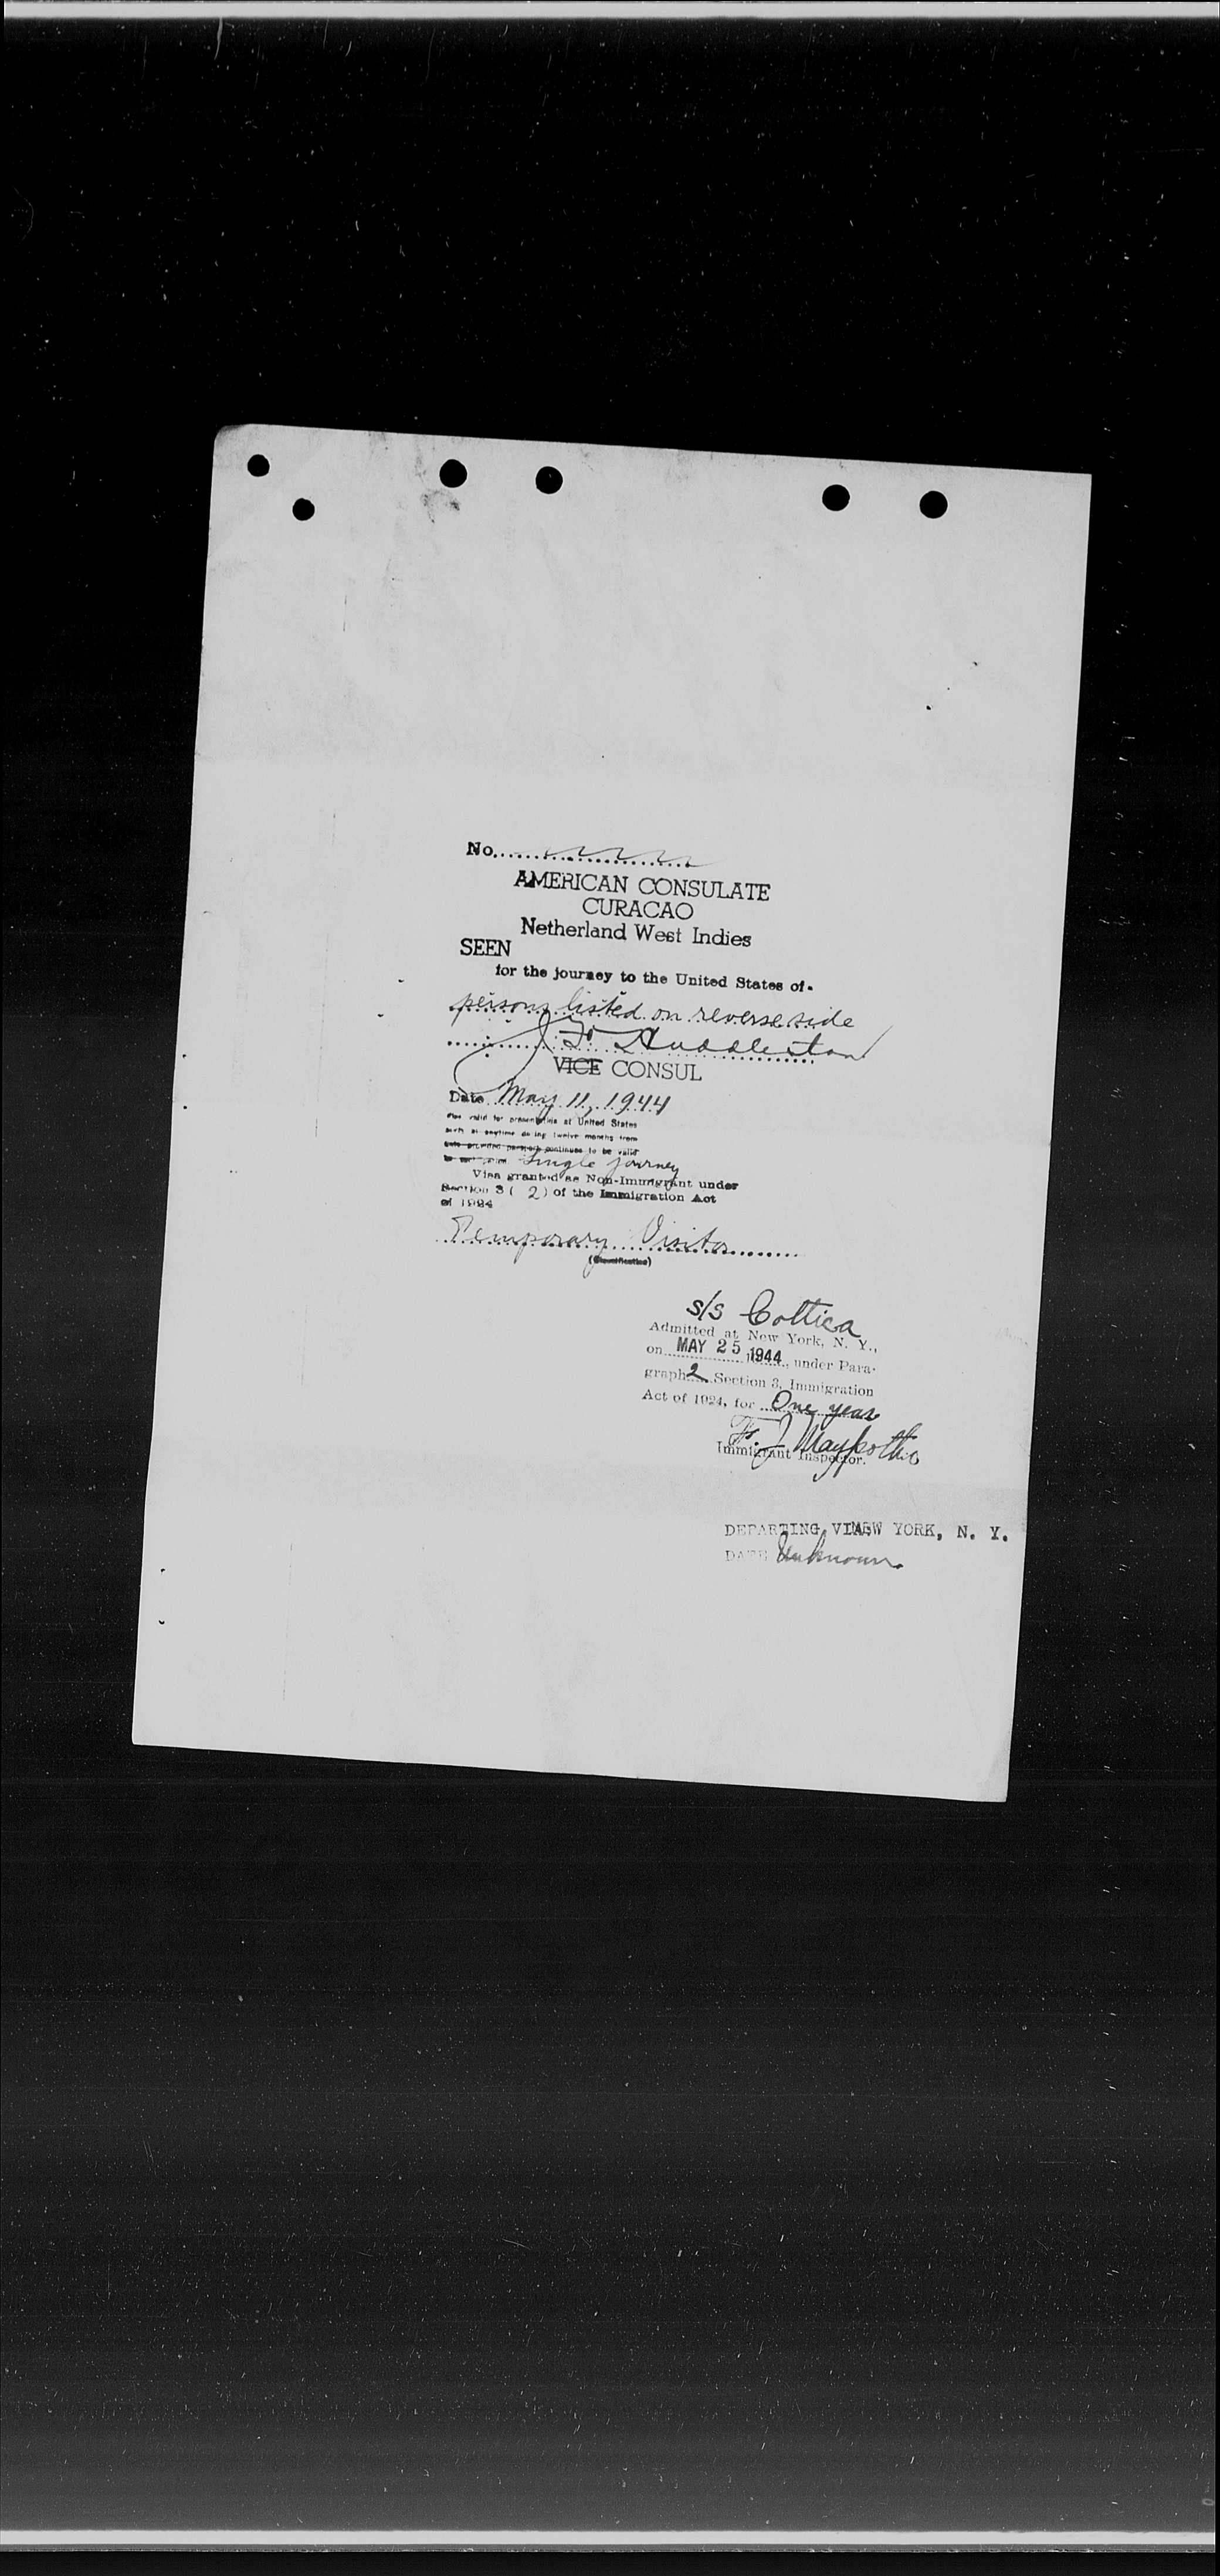 No.
AMERICAN CONSULATE
CURACAO
Netherland West Indies
SEEN
for the journey to the United States of-
persons listed on reverse side
J F Huddleston
VICE CONSUL
Date May 11, 1944
valid for presentation at United States
at anytime during twelve months from
date provided passport continues to be valid
Single journey
Visa granted as Non-Immigrant under
Section 3 ( 2 ) of the Immigration Act
of 1924
Temporary Visitor
(Classification)
s/s Cottica
Admitted at New York, N. Y.,
on MAY 25 1944, under Para-
graph 2 Section 3, Immigration
Act of 1924, for One year
F. J.
Immigrant Inspector.
DEPARTING VIA NEW YORK, N. Y.
DATE Unknown